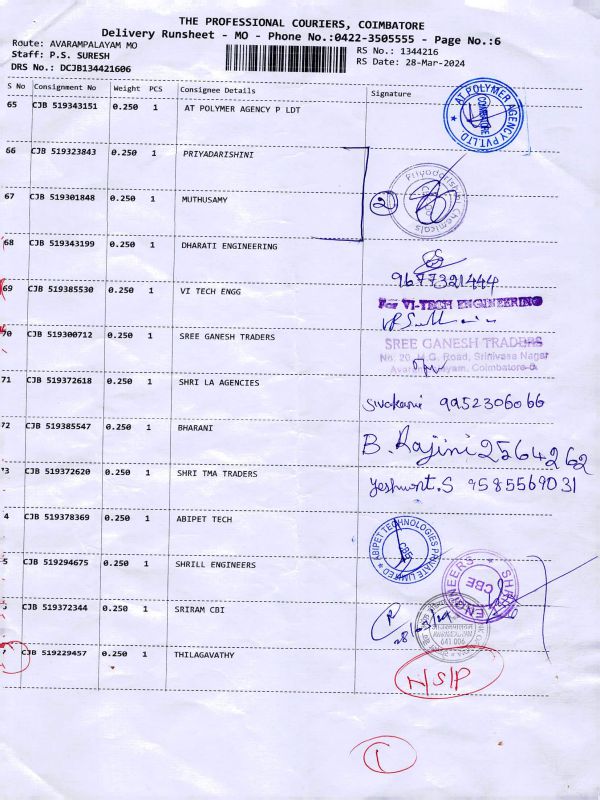 THE PROFESSIONAL COURIERS, COIMBATORE
Delivery Runsheet - MO - Phone No.:0422-3505555 - Page No.:6
Route: AVARAMPALAYAM MO
Staff: P.S. SURESH
DRS No.: DCJB134421606
RS No.: 1344216
RS Date: 28-Mar-2024
S No Consignment No Weight PCS Consignee Details Signature
65 CJB 519343151 0.250 1 AT POLYMER AGENCY P LDT
AT POLYMER AGENCY PVT.LTD COIMBATORE
66 CJB 519323843 0.250 1 PRIYADARISHINI
Priyadarishini Chemicals
2
67 CJB 519301848 0.250 1 MUTHUSAMY
68 CJB 519343199 0.250 1 DHARATI ENGINEERING
9677321444
69 CJB 519385530 0.250 1 VI TECH ENGG
For VI-TECH ENGINEERING
70 CJB 519300712 0.250 1 SREE GANESH TRADERS
SREE GANESH TRADERS
No. 20, M.G. Road, Srinivasa Nagar
Coimbatore-
71 CJB 519372618 0.250 1 SHRI LA AGENCIES
Sivakami 9952306066
72 CJB 519385547 0.250 1 BHARANI
B. Rajini 2564262
73 CJB 519372620 0.250 1 SHRI TMA TRADERS
Yeshwnt.S 9585569031
4 CJB 519378369 0.250 1 ABIPET TECH
ABIPET TECHNOLOGIES PRIVATE LIMITED CBE
5 CJB 519294675 0.250 1 SHRILL ENGINEERS
ENGINEERS CBE
CJB 519372344 0.250 1 SRIRAM CBI
641 006
7 CJB 519229457 0.250 1 THILAGAVATHY
N/S/P
1